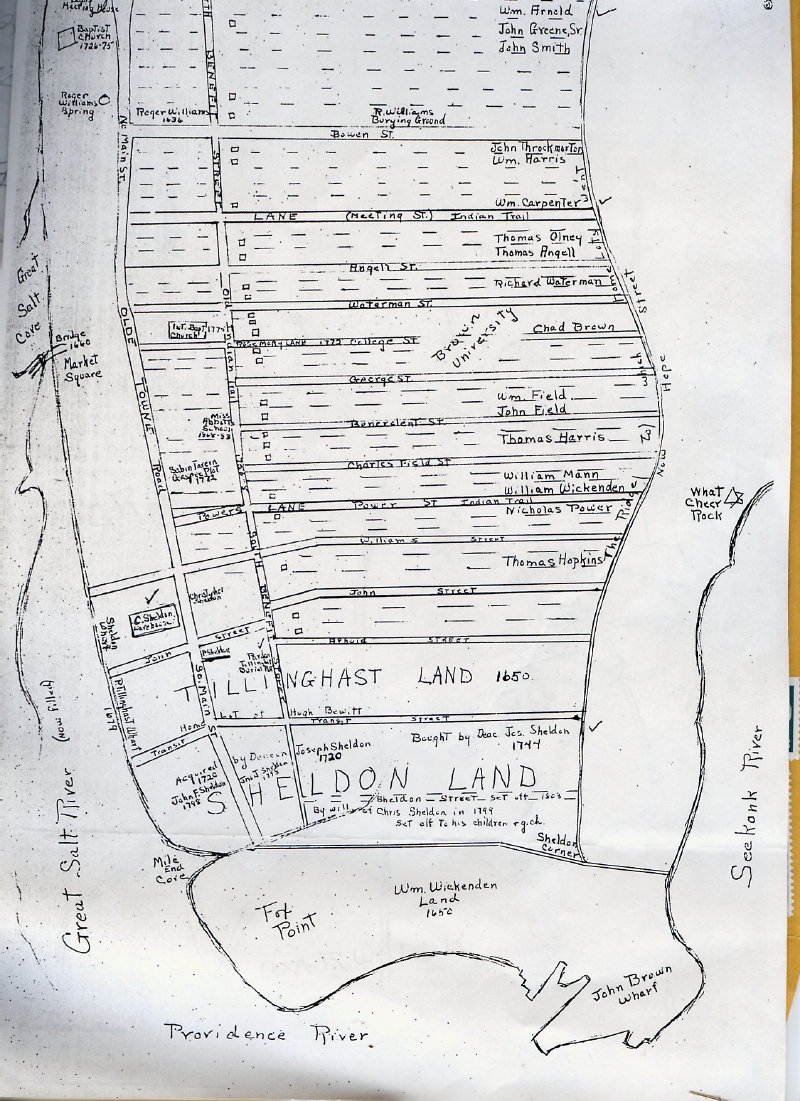 Meeting House
Baptist
Church
1726-75
Roger
Williams
Spring
No Main St.
Roger Williams
1636
BENEFIT
STREET
Wm. Arnold
John Greene, Sr.
John Smith
R. Williams
Burying Ground
Bowen St.
John Throckmorton
Wm. Harris
Wm. Carpenter
LANE (Meeting St.) Indian Trail
Thomas Olney
Thomas Angell
Angell St.
Richard Waterman
Waterman St.
Great
Salt
Cove
Bridge
1660
Market
Square
OLDE
TOWNE
Road
1st. Bapt. 1775
Church
Old
Indian Trail
Rosemary LANE 1772 College St
Brown
University
Chad Brown
George St.
Wm. Field
John Field
Benevolent St.
Thomas Harris
Miss
School
Charles Field St
William Mann
William Wickenden
Powers LANE Power St Indian Trail
Nicholas Power
Williams Street
Thomas Hopkins
The Ridge
Now
Hope
Street
which
What
Cheer
Rock
C. Sheldon
Warehouse
Sheldon
Wharf
John Street
John Street
South
BENEFIT
Street
Arnold STREET
P Sheldon
Pardon
Tillinghast
Burial Plot
So. Main St
TILLINGHAST LAND 1650.
P. Tillinghast Wharf
1679
Home Lot of Hugh Bewitt
Transit
Transit Street
Acquired
1720
John F. Sheldon
1798
by Deacon
Joseph Sheldon
1720
Bought by Deac. Jos. Sheldon
1744
SHELDON LAND
Sheldon Street set off
By will of Chris Sheldon in 1799
Set off to his children & g.ch.
Sheldon
Corner
Great Salt River (now filled)
Mile
End
Cove
Wm. Wickenden
Land
1650
Fox
Point
John Brown
Wharf
Seekonk River
Providence River